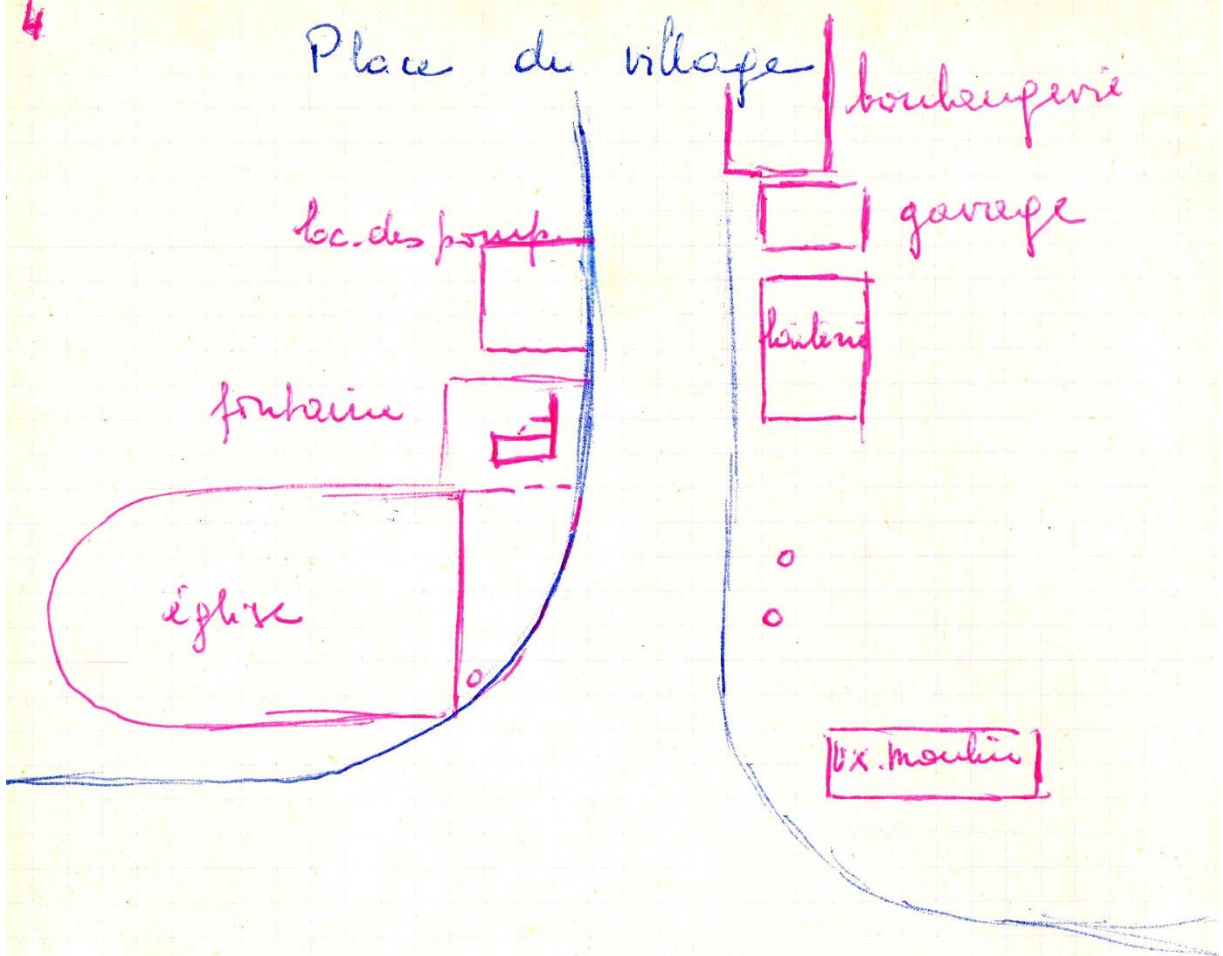 4
Place du village
boulangerie
garage
loc. des pomp.
laiterie
fontaine
église
vx. moulin